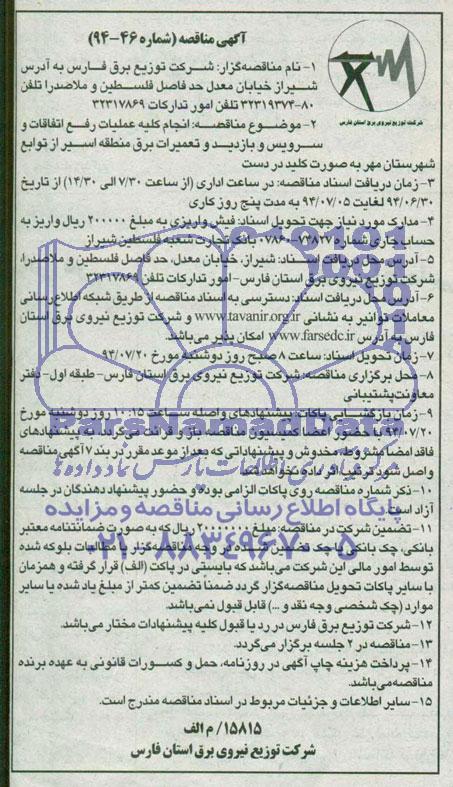 آگهی مناقصه (شماره ۴۶-۹۴)
شرکت توزیع نیروی برق استان فارس
۱- نام مناقصه‌گزار: شرکت توزیع برق فارس به آدرس
شیراز خیابان معدل حد فاصل فلسطین و ملاصدرا تلفن
۸۰-۳۲۳۱۹۳۷۴ تلفن امور تدارکات ۳۲۳۱۷۸۶۹
۲- موضوع مناقصه: انجام کلیه عملیات رفع اتفاقات و
سرویس و بازدید و تعمیرات برق منطقه اسیر از توابع
شهرستان مهر به صورت کلید در دست
۳- زمان دریافت اسناد مناقصه: در ساعت اداری (از ساعت ۷/۳۰ الی ۱۴/۳۰) از تاریخ
۹۴/۰۶/۳۰ لغایت ۹۴/۰۷/۰۵ به مدت پنج روز کاری
۴- مدارک مورد نیاز جهت تحویل اسناد: فیش واریزی به مبلغ ۲۰۰۰۰۰ ریال واریز به
حساب جاری شماره ۷۳۸۲۷-۰۷۸۶۰ بانک تجارت شعبه فلسطین شیراز
۵- آدرس محل دریافت اسناد: شیراز، خیابان معدل، حد فاصل فلسطین و ملاصدرا،
شرکت توزیع نیروی برق استان فارس- امور تدارکات تلفن ۳۲۳۱۷۸۶۹
۶- آدرس محل دریافت اسناد: دسترسی به اسناد مناقصه از طریق شبکه اطلاع رسانی
معاملات توانیر به نشانی www.tavanir.org.ir و شرکت توزیع نیروی برق استان
فارس به آدرس www.farsedc.ir امکان پذیر می‌باشد.
۷- زمان تحویل اسناد: ساعت ۸ صبح روز دوشنبه مورخ ۹۴/۰۷/۲۰
۸- محل برگزاری مناقصه: شرکت توزیع نیروی برق استان فارس- طبقه اول- دفتر
معاونت پشتیبانی
۹- زمان بازگشایی پاکات: پیشنهادهای واصله ساعت ۱۰:۱۵ روز دوشنبه مورخ
۹۴/۰۷/۲۰ با حضور اعضا کمیسیون مناقصه باز و قرائت می‌گردد. به پیشنهادهای
فاقد امضا مشروط، مخدوش و پیشنهاداتی که بعد از موعد مقرر در بند ۷ آگهی مناقصه
واصل شود ترتیب اثر داده نخواهد شد.
۱۰- ذکر شماره مناقصه روی پاکات الزامی بوده و حضور پیشنهاد دهندگان در جلسه
آزاد است.
۱۱- تضمین شرکت در مناقصه: مبلغ ۲۰۰۰۰۰۰۰ ریال که به صورت ضمانتنامه معتبر
بانکی، چک بانکی یا چک تضمین شده در وجه مناقصه‌گزار یا مطالبات بلوکه شده
توسط امور مالی این شرکت می‌باشد که بایستی در پاکت (الف) قرار گرفته و همزمان
با سایر پاکات تحویل مناقصه‌گزار گردد ضمناً تضمین کمتر از مبلغ یاد شده یا سایر
موارد (چک شخصی وجه نقد و ...) قابل قبول نمی‌باشد.
۱۲- شرکت توزیع برق فارس در رد یا قبول کلیه پیشنهادات مختار می‌باشد.
۱۳- مناقصه در ۲ جلسه برگزار می‌گردد.
۱۴- پرداخت هزینه چاپ آگهی در روزنامه، حمل و کسورات قانونی به عهده برنده
مناقصه می‌باشد.
۱۵- سایر اطلاعات و جزئیات مربوط در اسناد مناقصه مندرج است.
۱۵۸۱۵/ م الف
شرکت توزیع نیروی برق استان فارس
ParsNamadData
پایگاه اطلاع رسانی مناقصه و مزایده
۰۲۱-۸۸۳۴۹۶۷۰-۵